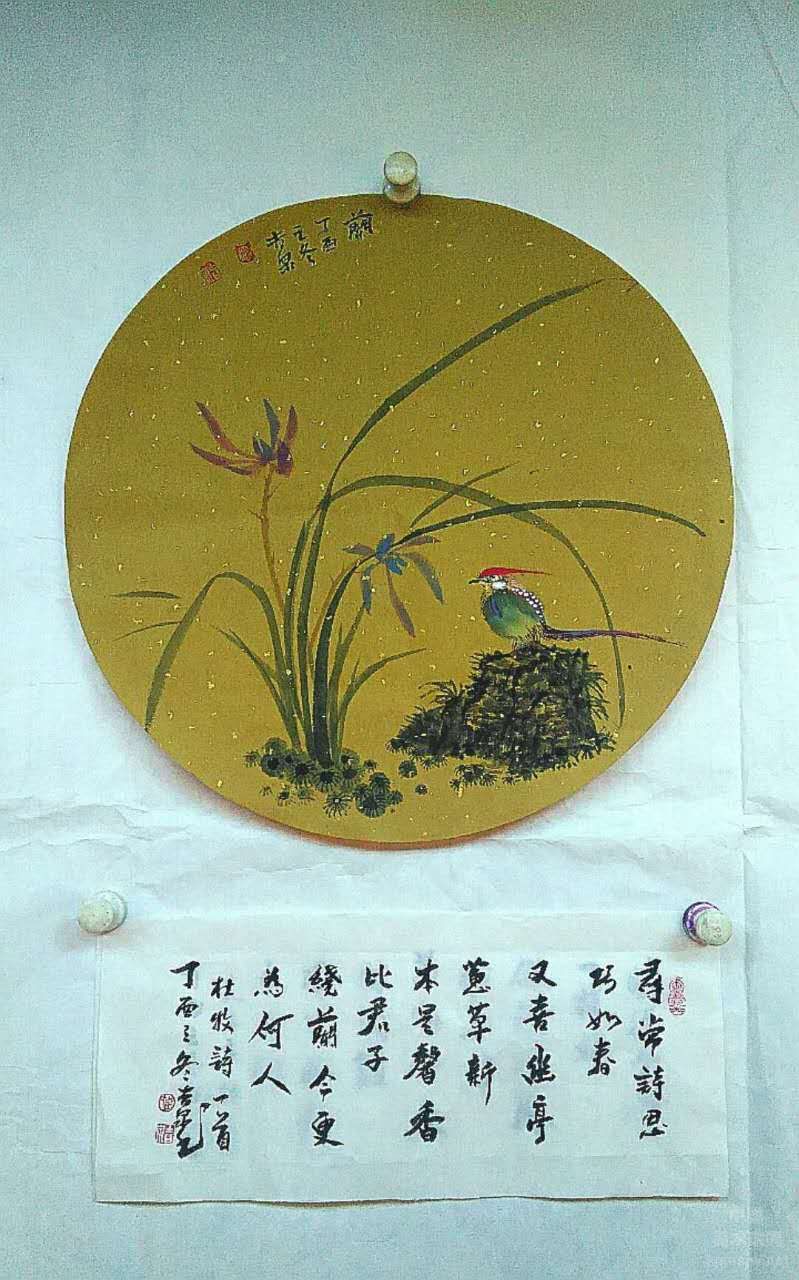 蘭
丁酉
之冬
尋常詩思
巧如春
又喜幽亭
蕙草新
本是馨香
比君子
繞蘭今更
為何人
杜牧詩一首
丁酉之冬